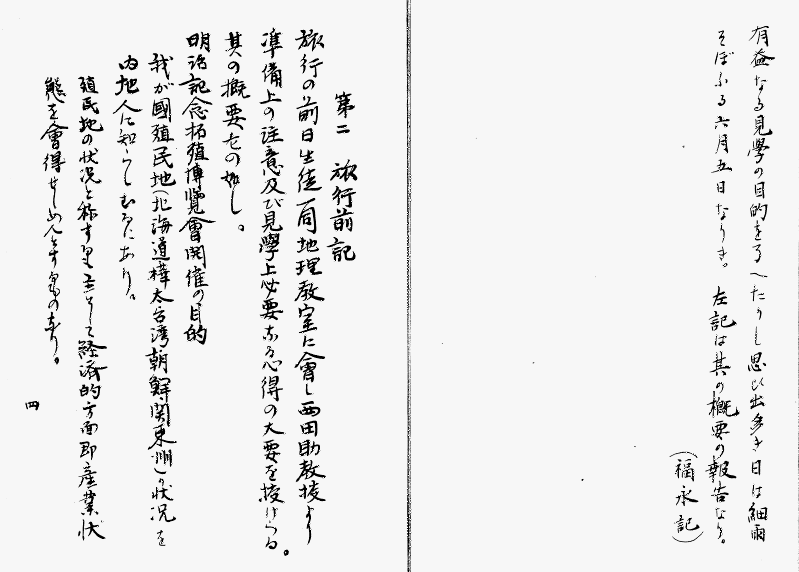 有益なる見學の目的をも へたりし思ひ出多き日は細雨
そぼふる六月五日なりき。 左記は其の概要の報告なり。
(福永記)
第二 旅行前記
旅行の前日生徒一同地理教室に會し西田助教授より
準備上の注意及び見學上必要なる心得の大要を授けらる。
其の概要左の如し。
明治記念拓殖博覽會開催の目的
我が國殖民地(北海道樺太台湾朝鮮關東洲)の状况を
内地人に知らしむるにあり。
殖民地の状况と称する 主として経済的方面即産業状
態を會得せしめんとするものなり。
四